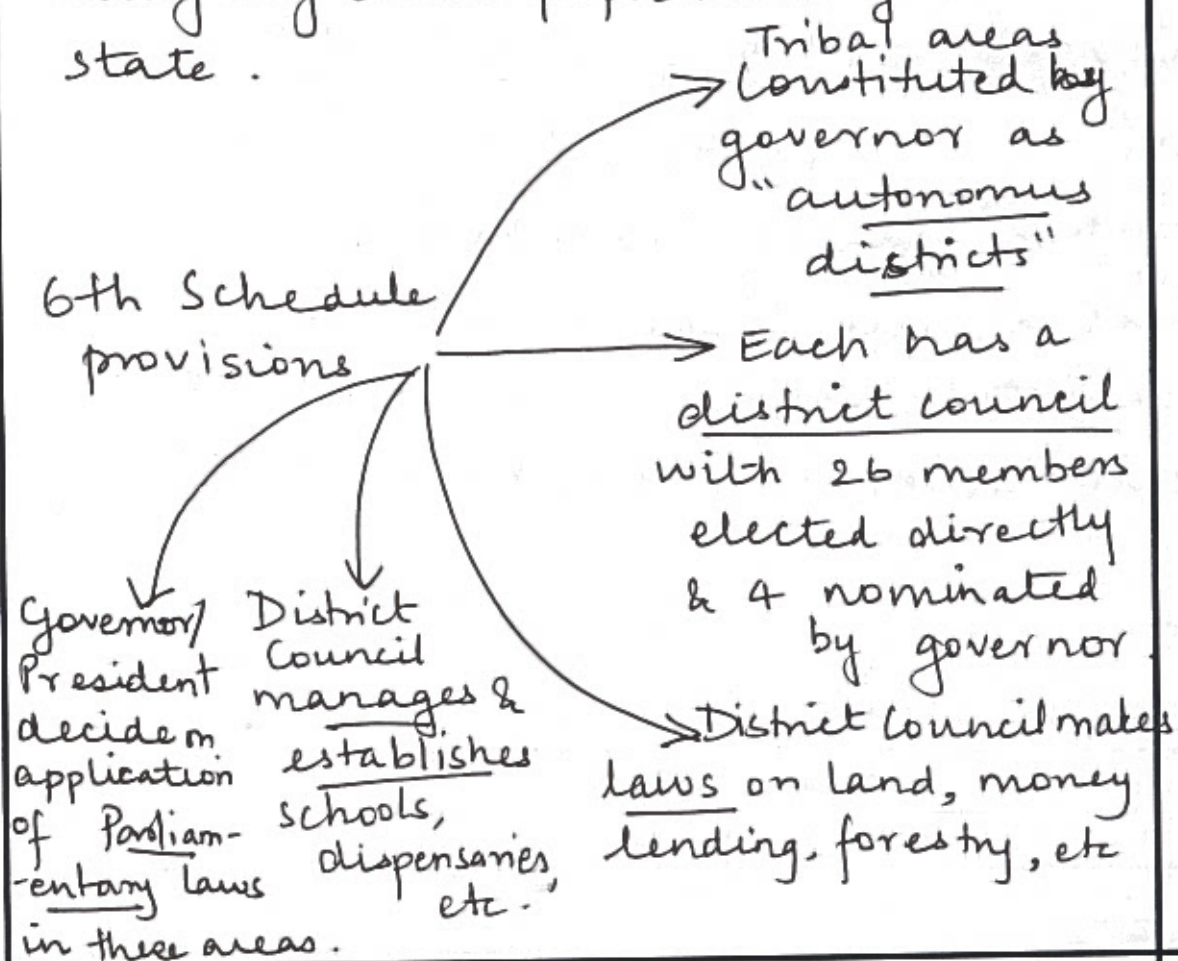 state .
Tribal areas
Constituted by
governor as
"autonomus
districts"
6th Schedule
provisions
Each has a
district council
with 26 members
elected directly
& 4 nominated
by governor.
District Council makes
laws on land, money
lending, forestry, etc
District
Council
manages &
establishes
schools,
dispensaries,
etc.
Governor/
President
decide on
application
of Parliam-
-entary laws
in these areas.